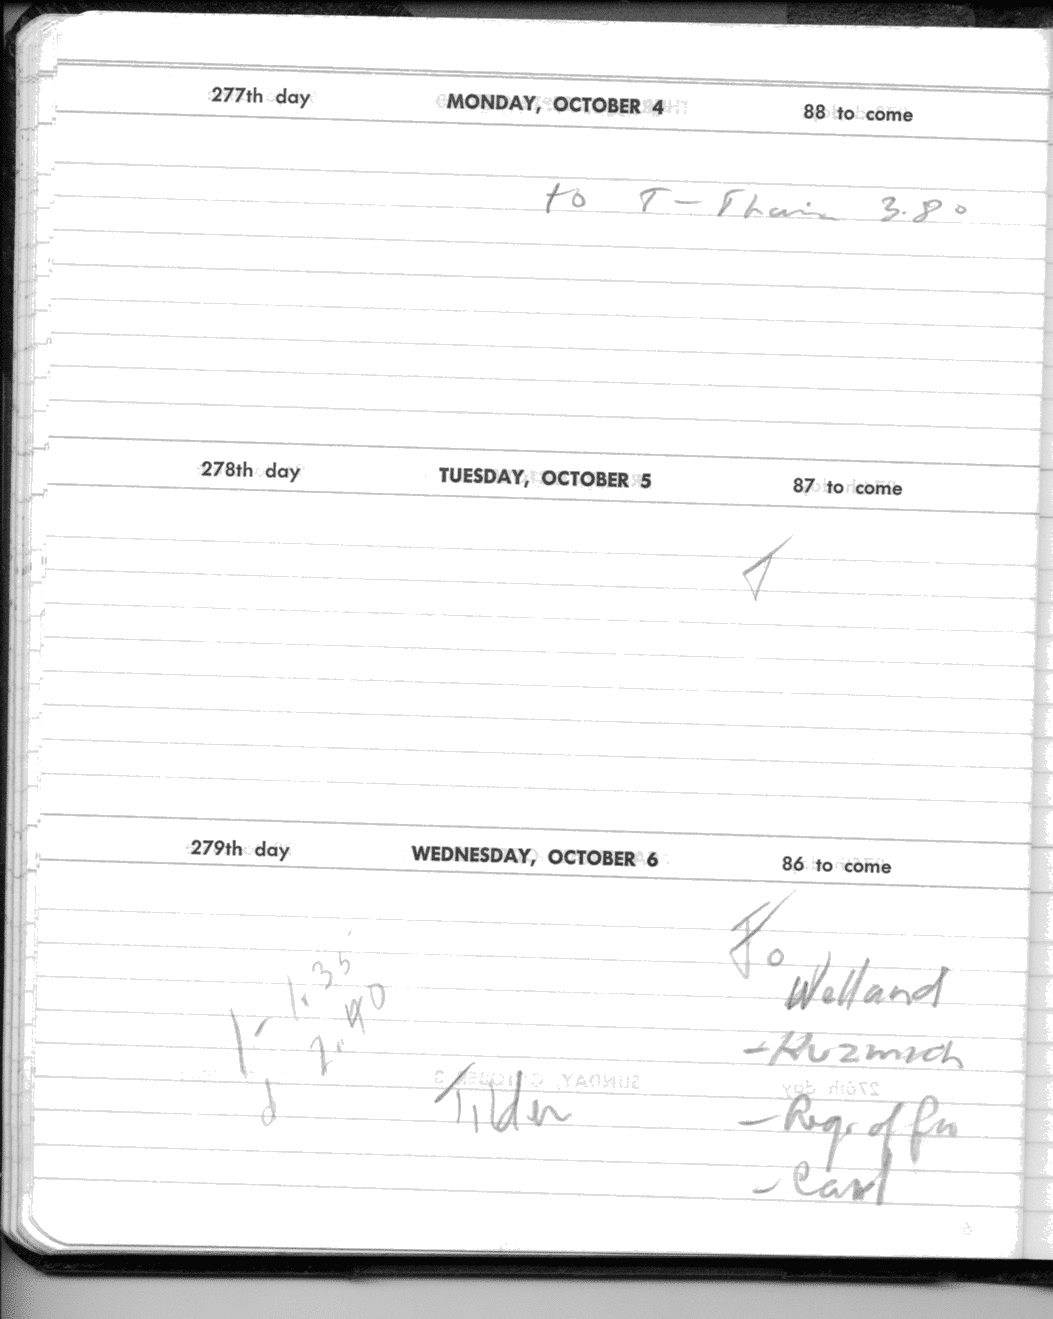 277th day MONDAY, OCTOBER 4 88 to come
to T - Thain 3.80
278th day TUESDAY, OCTOBER 5 87 to come
279th day WEDNESDAY, OCTOBER 6 86 to come
To
Welland
1.35
2.40
- Kuzmich
Tilden
- Regr of
- Carl